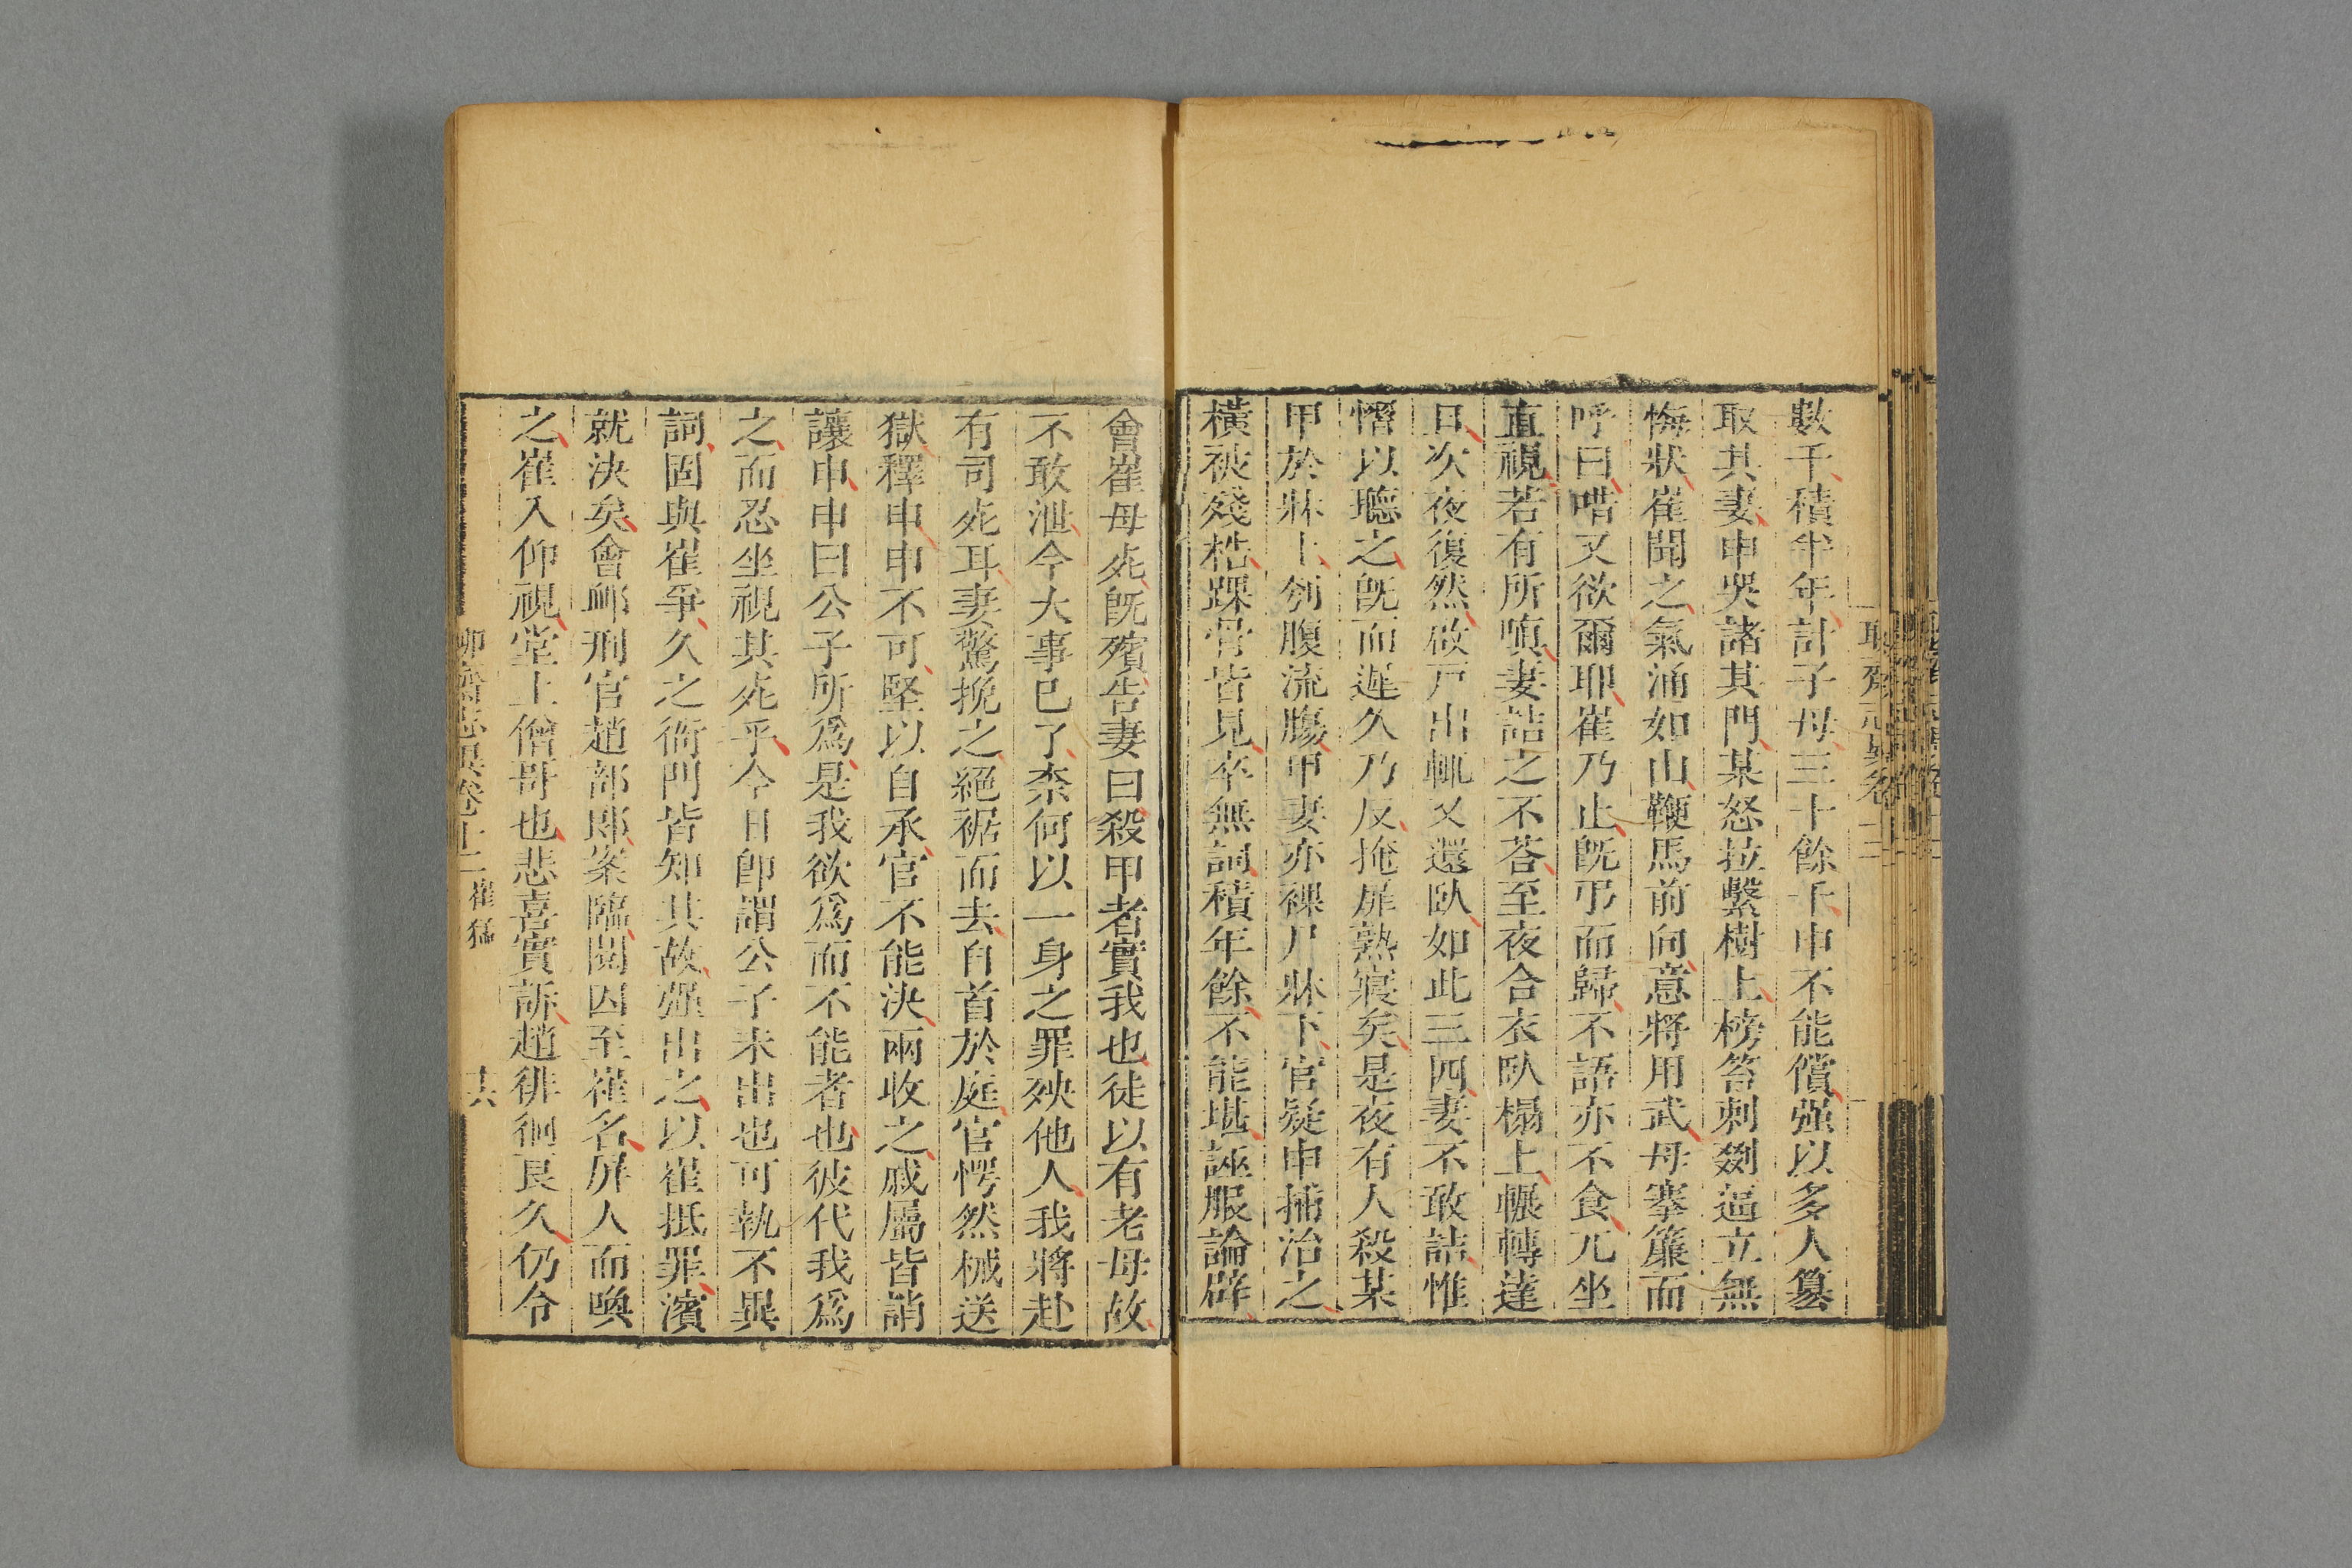 數千積半年計子母三十餘千申不能償强以多人篡
取其妻申哭諸其門某怒拉繫樹上榜笞刺剟逼立無
悔狀崔聞之氣涌如山鞭馬前向意將用武母搴簾而
呼曰唶又欲爾耶崔乃止旣弔而歸不語亦不食兀坐
直視若有所嗔妻詰之不荅至夜合衣臥榻上輾轉達
旦次夜復然啟戸出輒又還臥如此三四妻不敢詰惟
慴以聽之旣而遲久乃反掩扉熟寢矣是夜有人殺某
甲於牀上刳腹流腸甲妻亦裸尸牀下官疑申捕治之
橫被殘梏踝骨皆見卒無詞積年餘不能堪誣服論辟
會崔母死旣殯告妻曰殺甲者實我也徒以有老母故
不敢泄今大事已了柰何以一身之罪殃他人我將赴
有司死耳妻驚挽之絕裾而去自首於庭官愕然械送
獄釋申申不可堅以自承官不能決兩收之戚屬皆誚
讓申申曰公子所爲是我欲爲而不能者也彼代我爲
之而忍坐視其死乎今日卽謂公子未出也可執不異
詞固與崔爭久之衙門皆知其故强出之以崔抵罪濱
就決矣會卹刑官趙部郎案臨閱囚至崔名屏人而喚
之崔入仰視堂上僧哥也悲喜實訴趙徘徊良久仍令
聊齋志異卷十二 崔猛 十六